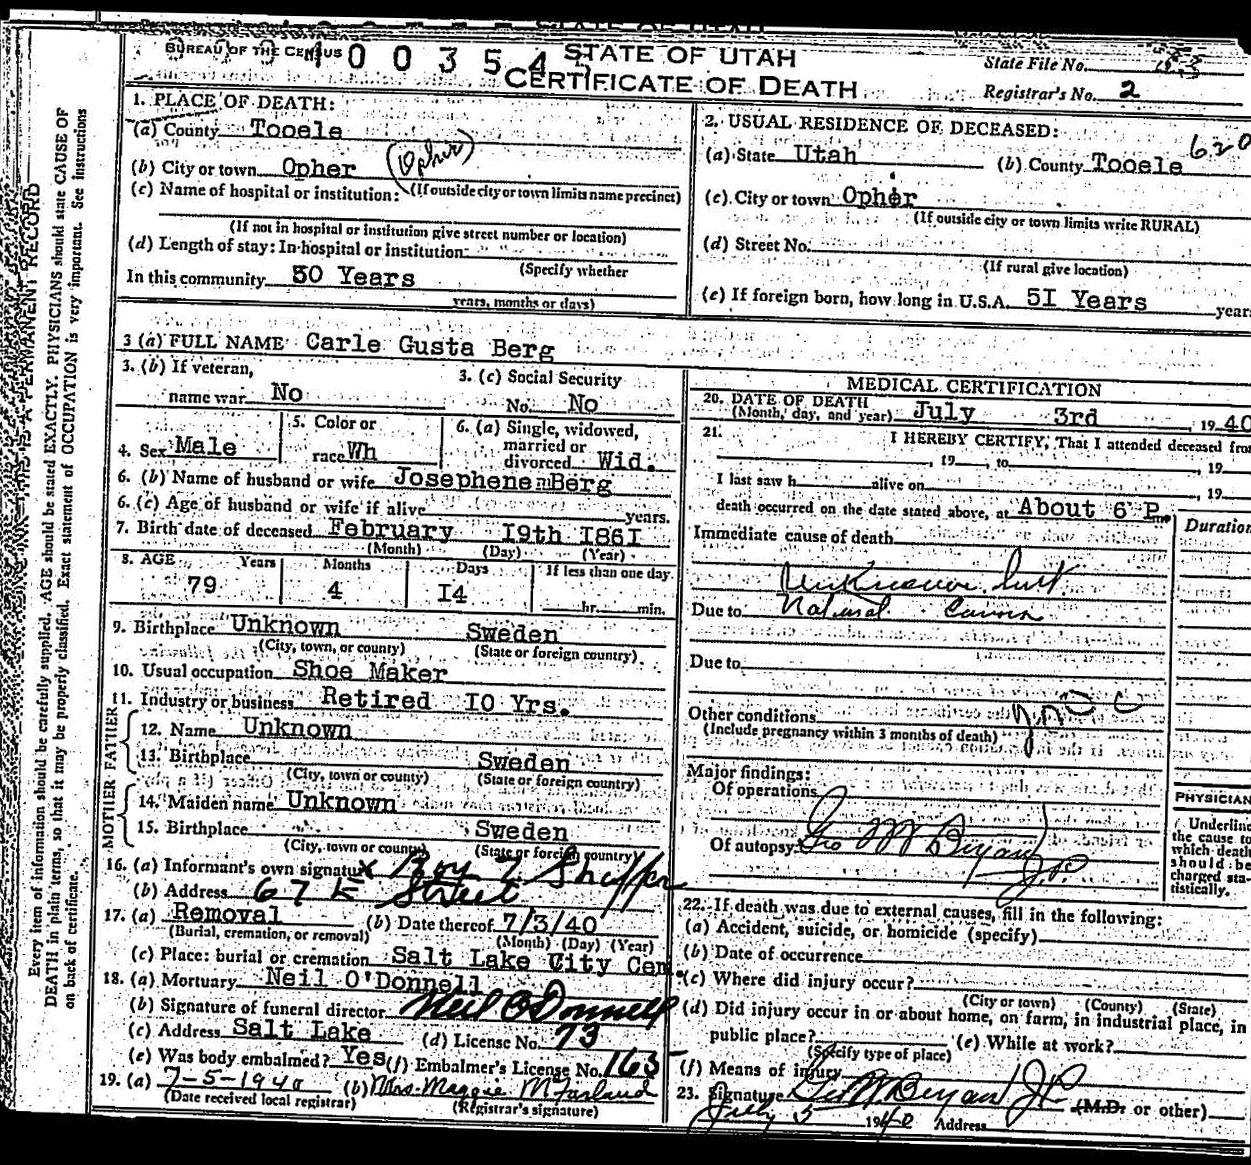 BUREAU OF THE CENSUS
1 0 0 3 5 4
STATE OF UTAH
CERTIFICATE OF DEATH
State File No.
Registrar's No. 2
Every item of information should be carefully supplied. AGE should be stated EXACTLY. PHYSICIANS should state CAUSE OF
DEATH in plain terms, so that it may be properly classified. Exact statement of OCCUPATION is very important. See instructions
on back of certificate.
1. PLACE OF DEATH:
(a) County Tooele
(b) City or town Opher (Ophir)
(If outside city or town limits name precinct)
(c) Name of hospital or institution:
(If not in hospital or institution give street number or location)
(d) Length of stay: In hospital or institution
(Specify whether
In this community 50 Years
years, months or days)
2. USUAL RESIDENCE OF DECEASED:
620
(a) State Utah (b) County Tooele
(c) City or town Opher
(If outside city or town limits write RURAL)
(d) Street No.
(If rural give location)
(e) If foreign born, how long in U.S.A. 5I Years years
3 (a) FULL NAME Carle Gusta Berg
3. (b) If veteran,
name war No
3. (c) Social Security
No. No
4. Sex Male
5. Color or
race Wh
6. (a) Single, widowed,
married or
divorced Wid.
6. (b) Name of husband or wife Josephene Berg
6. (c) Age of husband or wife if alive years.
7. Birth date of deceased February I9th I86I
(Month) (Day) (Year)
8. AGE Years Months Days If less than one day
79 4 I4 hr. min.
9. Birthplace Unknown Sweden
(City, town, or county) (State or foreign country)
10. Usual occupation Shoe Maker
11. Industry or business Retired I0 Yrs.
FATHER
12. Name Unknown
13. Birthplace Sweden
(City, town or county) (State or foreign country)
MOTHER
14. Maiden name Unknown
15. Birthplace Sweden
(City, town or county) (State or foreign country)
16. (a) Informant's own signature x Roy Sheffer
(b) Address 67 E Street
17. (a) Removal (b) Date thereof 7/3/40
(Burial, cremation, or removal) (Month) (Day) (Year)
(c) Place: burial or cremation Salt Lake City Cem.
18. (a) Mortuary Neil O'Donnell
(b) Signature of funeral director Neil O'Donnell
(c) Address Salt Lake (d) License No. 73
(e) Was body embalmed? Yes (f) Embalmer's License No. 165
19. (a) 7-5-1940 (b) Mrs. Maggie McFarland
(Date received local registrar) (Registrar's signature)
MEDICAL CERTIFICATION
20. DATE OF DEATH
(Month, day, and year) July 3rd, 1940
21. I HEREBY CERTIFY, That I attended deceased from
, 19 , to , 19
I last saw h alive on , 19
death occurred on the date stated above, at About 6 P m.
Duration
Immediate cause of death
Unknown but
Due to Natural Causes
Due to
Other conditions
(Include pregnancy within 3 months of death)
Major findings:
Of operations
Of autopsy Geo W Bryan J.P.
PHYSICIAN
Underline
the cause to
which death
should be
charged sta-
tistically.
22. If death was due to external causes, fill in the following:
(a) Accident, suicide, or homicide (specify)
(b) Date of occurrence
(c) Where did injury occur?
(City or town) (County) (State)
(d) Did injury occur in or about home, on farm, in industrial place, in
public place? (e) While at work?
(Specify type of place)
(f) Means of injury
23. Signature Geo W Bryan JP (M.D. or other)
July 5 1940 Address